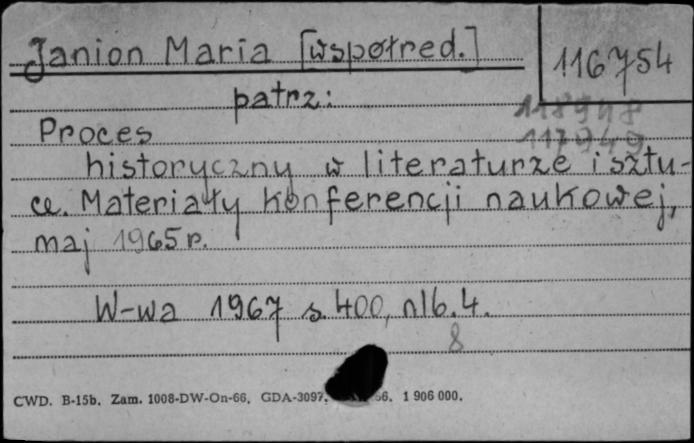 Janion Maria [współred.]
116754
patrz:
118948
Proces
117949
historyczny w literaturze i sztu-
ce. Materiały konferencji naukowej,
maj 1965 r.
W-wa 1967 s. 400, nlb. 4.
8
CWD. B-15b. Zam. 1008-DW-On-66. GDA-3097. 66. 1 906 000.